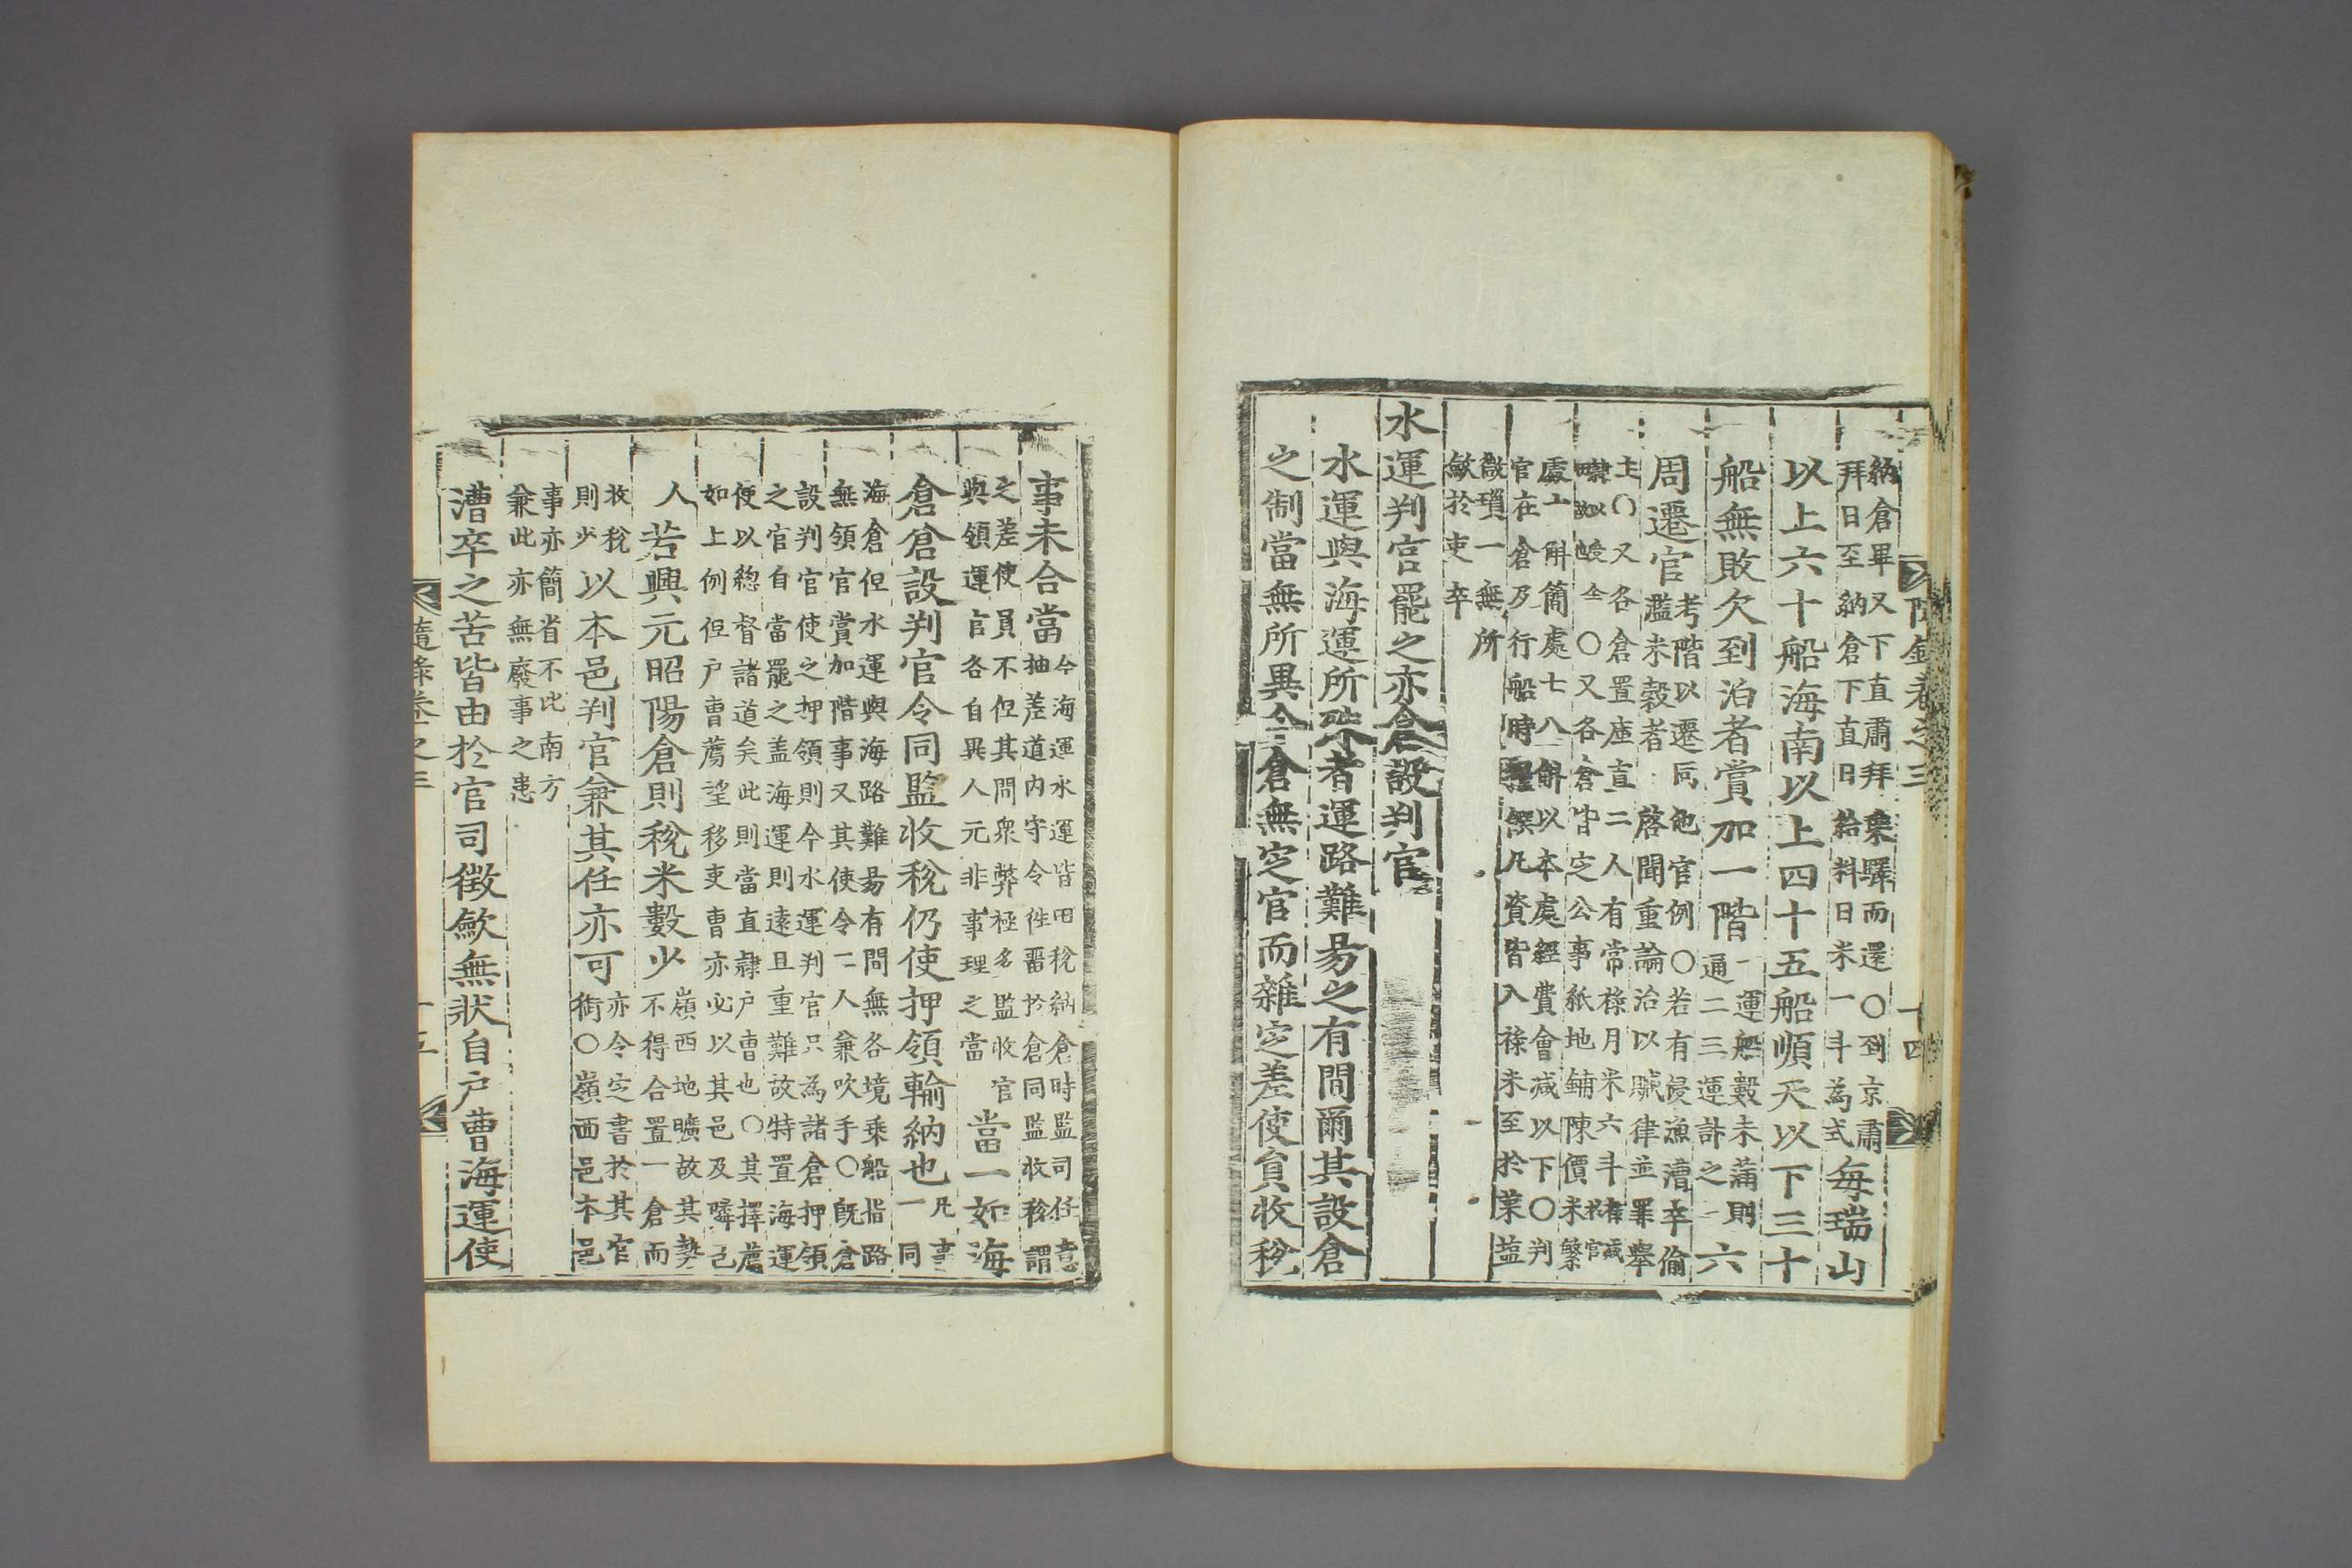 隨錄卷之三
十四
納倉畢又下直肅拜乘驛而還〇到京肅
拜日至納倉下直日給料日米一斗爲式
每瑞山
以上六十船海南以上四十五船順天以下三十
船無敗欠到泊者賞加一階
一運船數未滿則
通二三運計之
六
周遷官
考階以遷同他官例〇若有侵漁漕卒偷
濫米穀者啓聞重論治以贓律並罪舉
主〇又各倉置庫直二人有常祿月米六斗
〇又各倉皆定公事紙地鋪陳價米
處十斛簡處七八斛以本處經費會減以下〇判
官在倉及行船時凡資皆入祿米至於菜塩
微瑣一無所
斂於吏卒
水運判官罷之亦倉設判官
水運與海運所殊者運路難易之有間爾其設倉
之制當無所異今倉無定官而雜定差使員收稅
事未合當
今海運水運皆田稅納倉時監司任意
抽差道內守令徃番於倉同監收稅謂
之差使員不但其間衆弊極多監收官
與領運官各自異人元非事理之當
當一如海
倉倉設判官令同監收稅仍使押領輸納也
凡事
一同
海倉但水運與海路難易有間無各境乘船指路
無領官賞加階事又其使令二人兼吹手〇旣倉
設判官使之押領則今水運判官只爲諸倉押領
之官自當罷之盖海運則遠且重難故特置海運
使以緫督諸道矣此則當直隷戶曹也〇其擇薦
如上例但戶曹薦望移吏曹亦必以其邑及隣邑
人
若興元昭陽倉則稅米數少
嶺西地曠故其勢
不得合置一倉而
收稅
則少
以本邑判官兼其任亦可
亦令定書於其官
銜〇嶺西邑本邑
事亦簡省不比南方
兼此亦無廢事之患
漕卒之苦皆由於官司徵歛無狀自戶曹海運使
隨錄卷之三
十五